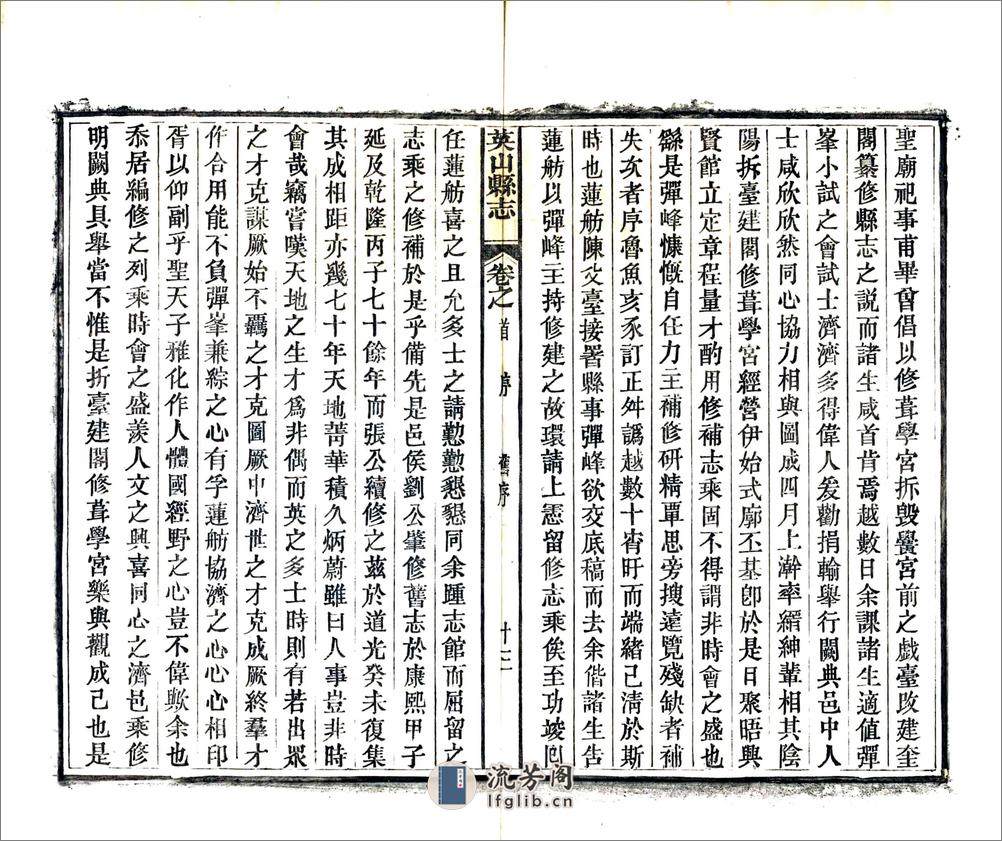 聖廟祀事甫畢曾倡以修葺學宮拆毀黌宮前之戲臺改建奎
閣纂修縣志之說而諸生咸首肯焉越數日余課諸生適值彈
峯小試之會試士濟濟多得偉人爰勸捐輸舉行闕典邑中人
士咸欣欣然同心協力相與圖成四月上澣率縉紳輩相其陰
陽拆臺建閣修葺學宮經營伊始式廓丕基卽於是日聚晤興
賢館立定章程量才酌用修補志乘固不得謂非時會之盛也
繇是彈峰慷慨自任力主補修研精覃思旁搜遠覽殘缺者補
失次者序魯魚亥豕訂正舛譌越數十宵旰而端緒已淸於斯
時也蓮舫陳父臺接署縣事彈峰欲交底稿而去余偕諸生吿
蓮舫以彈峰主持修建之故環請上憲留修志乘俟至功竣囘
英山縣志
卷之首
序
舊序
十三
任蓮舫喜之且允多士之請懃懃懇懇同余踵志館而屈留之
志乘之修補於是乎備先是邑侯劉公肇修舊志於康熙甲子
延及乾隆丙子七十餘年而張公續修之茲於道光癸未復集
其成相距亦幾七十年天地菁華積久炳蔚雖曰人事豈非時
會哉竊嘗嘆天地之生才爲非偶而英之多士時則有若出眾
之才克謀厥始不羈之才克圖厥中濟世之才克成厥終羣才
作合用能不負彈峯兼綜之心有孚蓮舫協濟之心心心相印
胥以仰副乎聖天子雅化作人體國經野之心豈不偉歟余也
忝居編修之列乘時會之盛羨人文之興喜同心之濟邑乘修
明闕典具舉當不惟是折臺建閣修葺學宮樂與觀成己也是
流芳阁
lfglib.cn